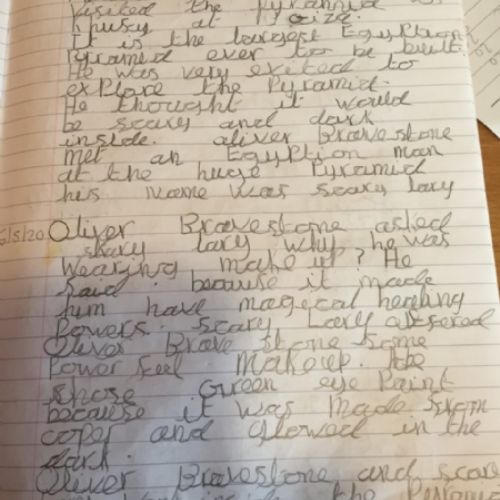 visited the Pyramid
at Giza.
It is the largest Egyption
Pyramid ever to be built.
He was very exited to
explore the Pyramid.
He thought it would
be scary and dark
inside. oliver Bravestone
met an Egyption man
at the huge Pyramid
his name was scary lary
5/5/20 Oliver Bravestone asked
skary lary why he was
wearing make up? He
said. because it made
him have magecal healing
Powers. scary Lary offered
Oliver Brave stone some
Power feel makeup. He
chose Green eye Paint
because it was made from
coper and glowed in the
dark.
Oliver Bravestone and scary
the Pyramid